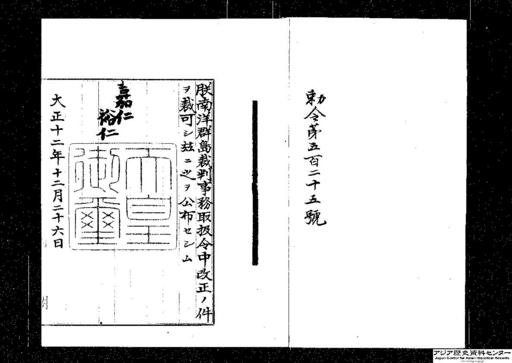 勅令第五百二十五號
朕南洋群島裁判事務取扱令中改正ノ件
ヲ裁可シ玆ニ之ヲ公布セシム
嘉仁
裕仁
天皇
御璽
大正十二年十二月二十六日
アジア歴史資料センター
Japan Center for Asian Historical Records